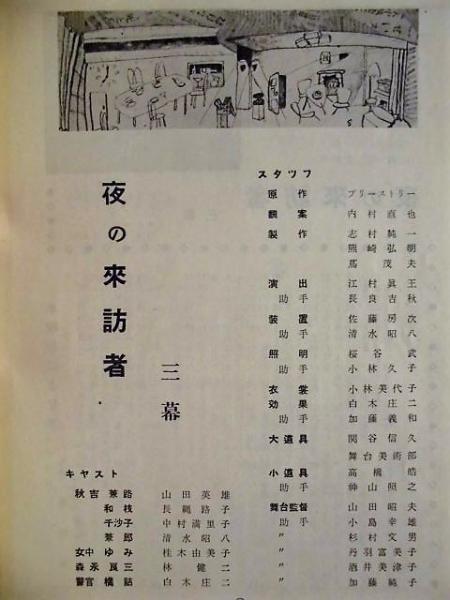 夜の來訪者
三幕
スタッフ
原作 プリーストリー
飜案 内村直也
製作 志村純一
熊崎弘明
馬茂夫
演出 江村眞王
助手 長良吉秋
装置 佐藤房次
助手 清水昭八
照明 桜谷武
助手 小林久子
衣裳 小林美代子
効果 白木庄二
助手 加藤義和
大道具 関谷信久
舞台美術部
小道具 高橋皓
助手 神山照之
舞台監督 山田昭夫
助手 小島幸雄
〃 杉村文男
〃 丹羽富美子
〃 酒井美津子
〃 加藤純子
キヤスト
秋吉兼路 山田英雄
和枝 長縄路子
千沙子 中村満里子
兼郎 清水昭八
女中ゆみ 桂木由美子
森永良三 林健二
警官橋詰 白木庄二